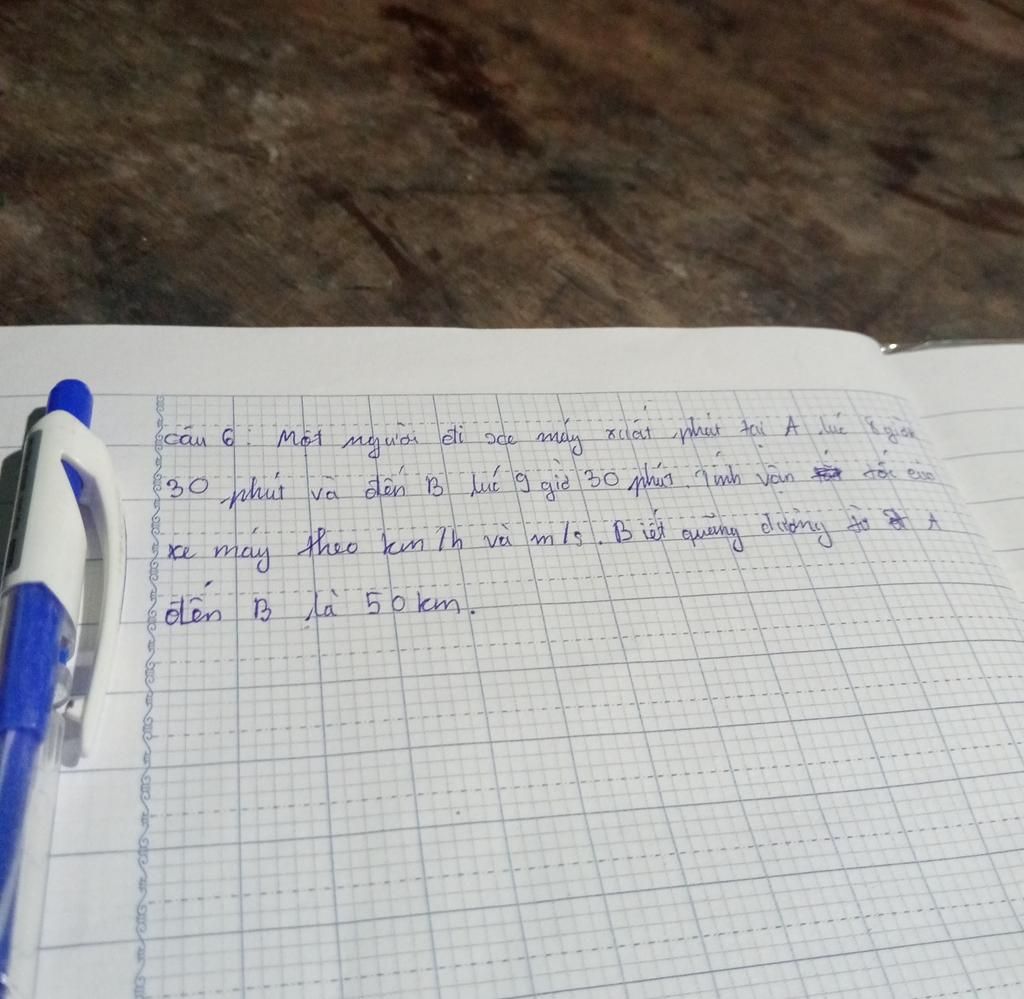 Câu 6: Một người đi xe máy xuất phát tại A lúc 8 giờ
30 phút và đến B lúc 9 giờ 30 phút. Tính vận tốc của
xe máy theo km/h và m/s. Biết quãng đường từ A
đến B là 50 km.